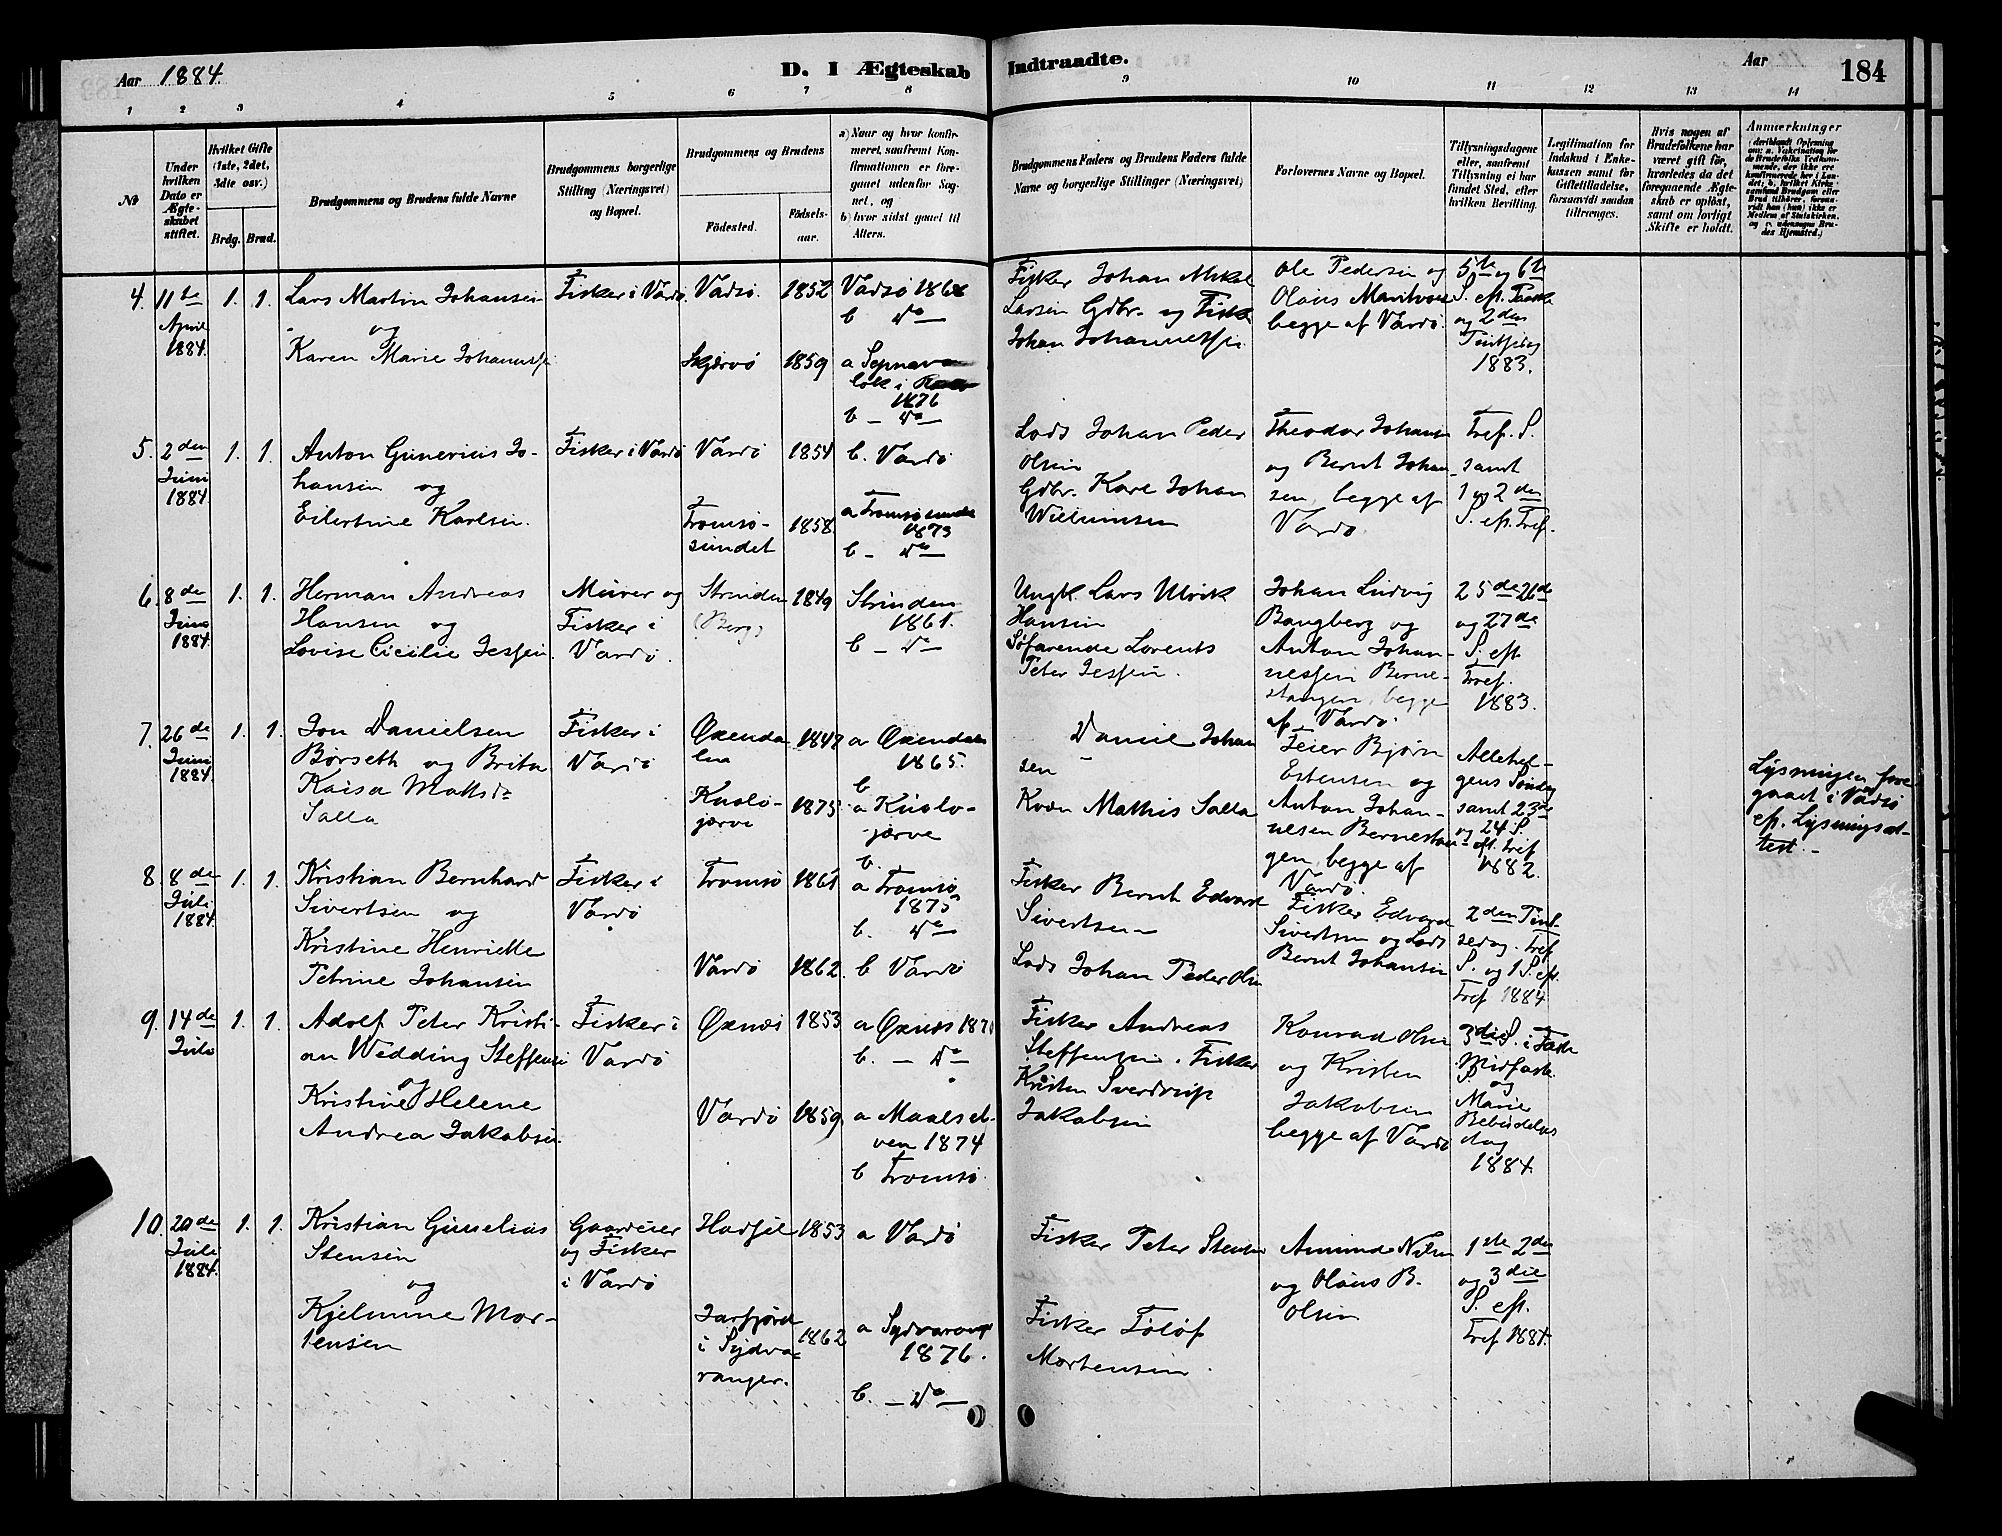 Aar 1884.
D. I Ægteskab Indtraadte.
Aar
184
1 2 3 4 5 6 7 8 9 10 11 12 13 14
No
Under hvilken Dato er Ægteskabet stiftet.
Hvilket Gifte (1ste, 2det, 3die osv.)
Brdg. Brud.
Brudgommens og Brudens fulde Navne
Brudgommens borgerlige Stilling (Næringsvei) og Bopæl.
Brudgommens og Brudens
Fødested.
Fødsels-aar.
a) Naar og hvor konfirmeret, saafremt Konfirmationen er foregaaet udenfor Sognet, og
b) hvor sidst gaaet til Alters.
Brudgommens Faders og Brudens Faders fulde Navne og borgerlige Stillinger (Næringsvei)
Forlovernes Navne og Bopæl.
Tillysningsdagene eller, saafremt Tillysning ei har fundet Sted, efter hvilken Bevilling.
Legitimation for Indskud i Enkekassen samt for Giftetilladelse, forsaavidt saadan tiltrænges.
Hvis nogen af Brudefolkene har været gift før, hvorledes da det foregaaende Ægteskab er opløst, samt om lovligt Skifte er holdt.
Anmærkninger
4. 11te April 1884. 1. 1.
Lars Martin Johansen
og
Karen Marie Johannessen
Fisker i Vardø.
Vadsø. 1852
Vadsø 1868
b Do
Skjervø 1859
a
1876
b - Do
Fisker Johan Mikal
Larsen Gdbr. og Fisker
Johan Johannessen
Ole Pedersen og
Olaus
begge af Vardø.
5te og 6te
S. eft.
og 2den
1883.
5. 2den Juni 1884 1. 1.
Anton Gunerius Jo-
hansen og
Eilertine Karlsen.
Fisker i Vardø
Vardø 1854 b. Vardø
Tromsø-
sundet 1858.
a Tromsøsundet
1873
b - Do
Lods Johan Peder
Olsen
Gdbr. Karl Johan
Theodor Johansen
og Bernt Johan-
sen, begge af
Vardø.
Tref. S.
samt
1 og 2den
S. eft. Tref.
6. 8de Juni 1884 1. 1.
Herman Andreas
Hansen og
Lovise Cicilie Jessen.
Murer og
Fisker i
Vardø.
Strinden
(Berg)
1849
Strinden
1861.
b - Do
Ungk. Lars Ulrik
Hansen
Søfarende Lorents
Peter Jessen.
Johan Ludvig
Bangberg og
Anton Johan-
nessen Berne-
stangen, begge
af Vardø.
25de 26de
og 27de
S. eft.
Tref.
1883.
7. 26de Juni 1884 1. 1.
Jon Danielsen
Børseth og Brita
Kaisa Mattsd:
Salla
Fisker i
Vardø
Øxenda-
len
a Øxendalen
1865.
b
Kuolo-
jærvi
a Kuolo-
jærve
b.
Daniel Johan-
sen
Kvæn Mathis Salla
Peier Bjørn
Estensen og
Anton Johan-
nesen Bernestan-
gen, begge af
Vardø.
Allehel-
gens Søndag
samt 23de
og 24 S.
eft. Tref
1882.
Lysningen fore-
gaaet i Vadsø
eft. Lysningsat-
test. -
8. 8de Juli 1884. 1. 1.
Kristian Bernhard
Sivertsen og
Kristine Henriette
Petrine Johansen
Fisker i
Vardø
Tromsø 1861
a Tromsø
1875
b. Do
Vardø 1862. b Vardø
Fisker Bernt Edvard
Sivertsen
Lods Johan Peder Olsen
Fisker Edvard
Sivertsen og Lods
Bernt Johansen
2den Pint-
sedag. Tref
S. og 1 S. eft.
Tref 1884
9. 14de Juli 1. 1.
Adolf Peter Kristi-
an Wedding Steffensen
og
Kristine Helene
Andrea Jakobsen.
Fisker i
Vardø
Øxnæs 1853
a Øxnæs
b. - Do
Vardø 1859
a Maalsel-
ven 1874
b Tromsø.
Fisker Andreas
Steffensen. Fisker
Kristen Sverdrup
Jakobsen
Konrad Olsen
og Kristen
Jakobsen
begge af Vardø
3die S. i Faste
Midfaste
S. og
Marie
Bebudelses
dag
1884.
10. 20de Juli 1884. 1. 1.
Kristian Gunelius
Stensen
og
Kjelmine Mor-
tensen
Gaardeier
og Fisker
i Vardø
Hadsel 1853 a Vardø
Jarfjord
i Sydva-
ranger.
1862
a Sydvaranger
1876.
b. - Do
Fisker Peter Stensen
Fisker Toløf
Mortensen.
Amund Nilsen
og Olaus B.
Olsen
1ste 2den
og 3die
S. eft.
Tref 1884.